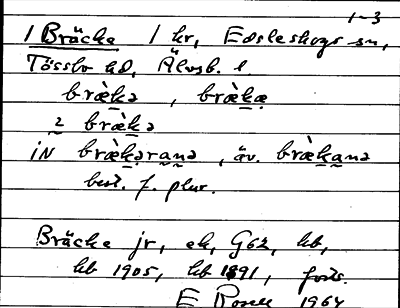 1-3
1 Bräcke 1 hr, Edsleskogs sn,
Tössbo hd, Älvsb. l.
bræ̀kə, bræ̀kæ
2 bræ̀kə
iN bræ̀kərana, äv. bræ̀kanə
best. f. plur.
Bräcke jr, ek, G62, hb,
hb 1905, hb 1891, forts.
E Rosell 1964